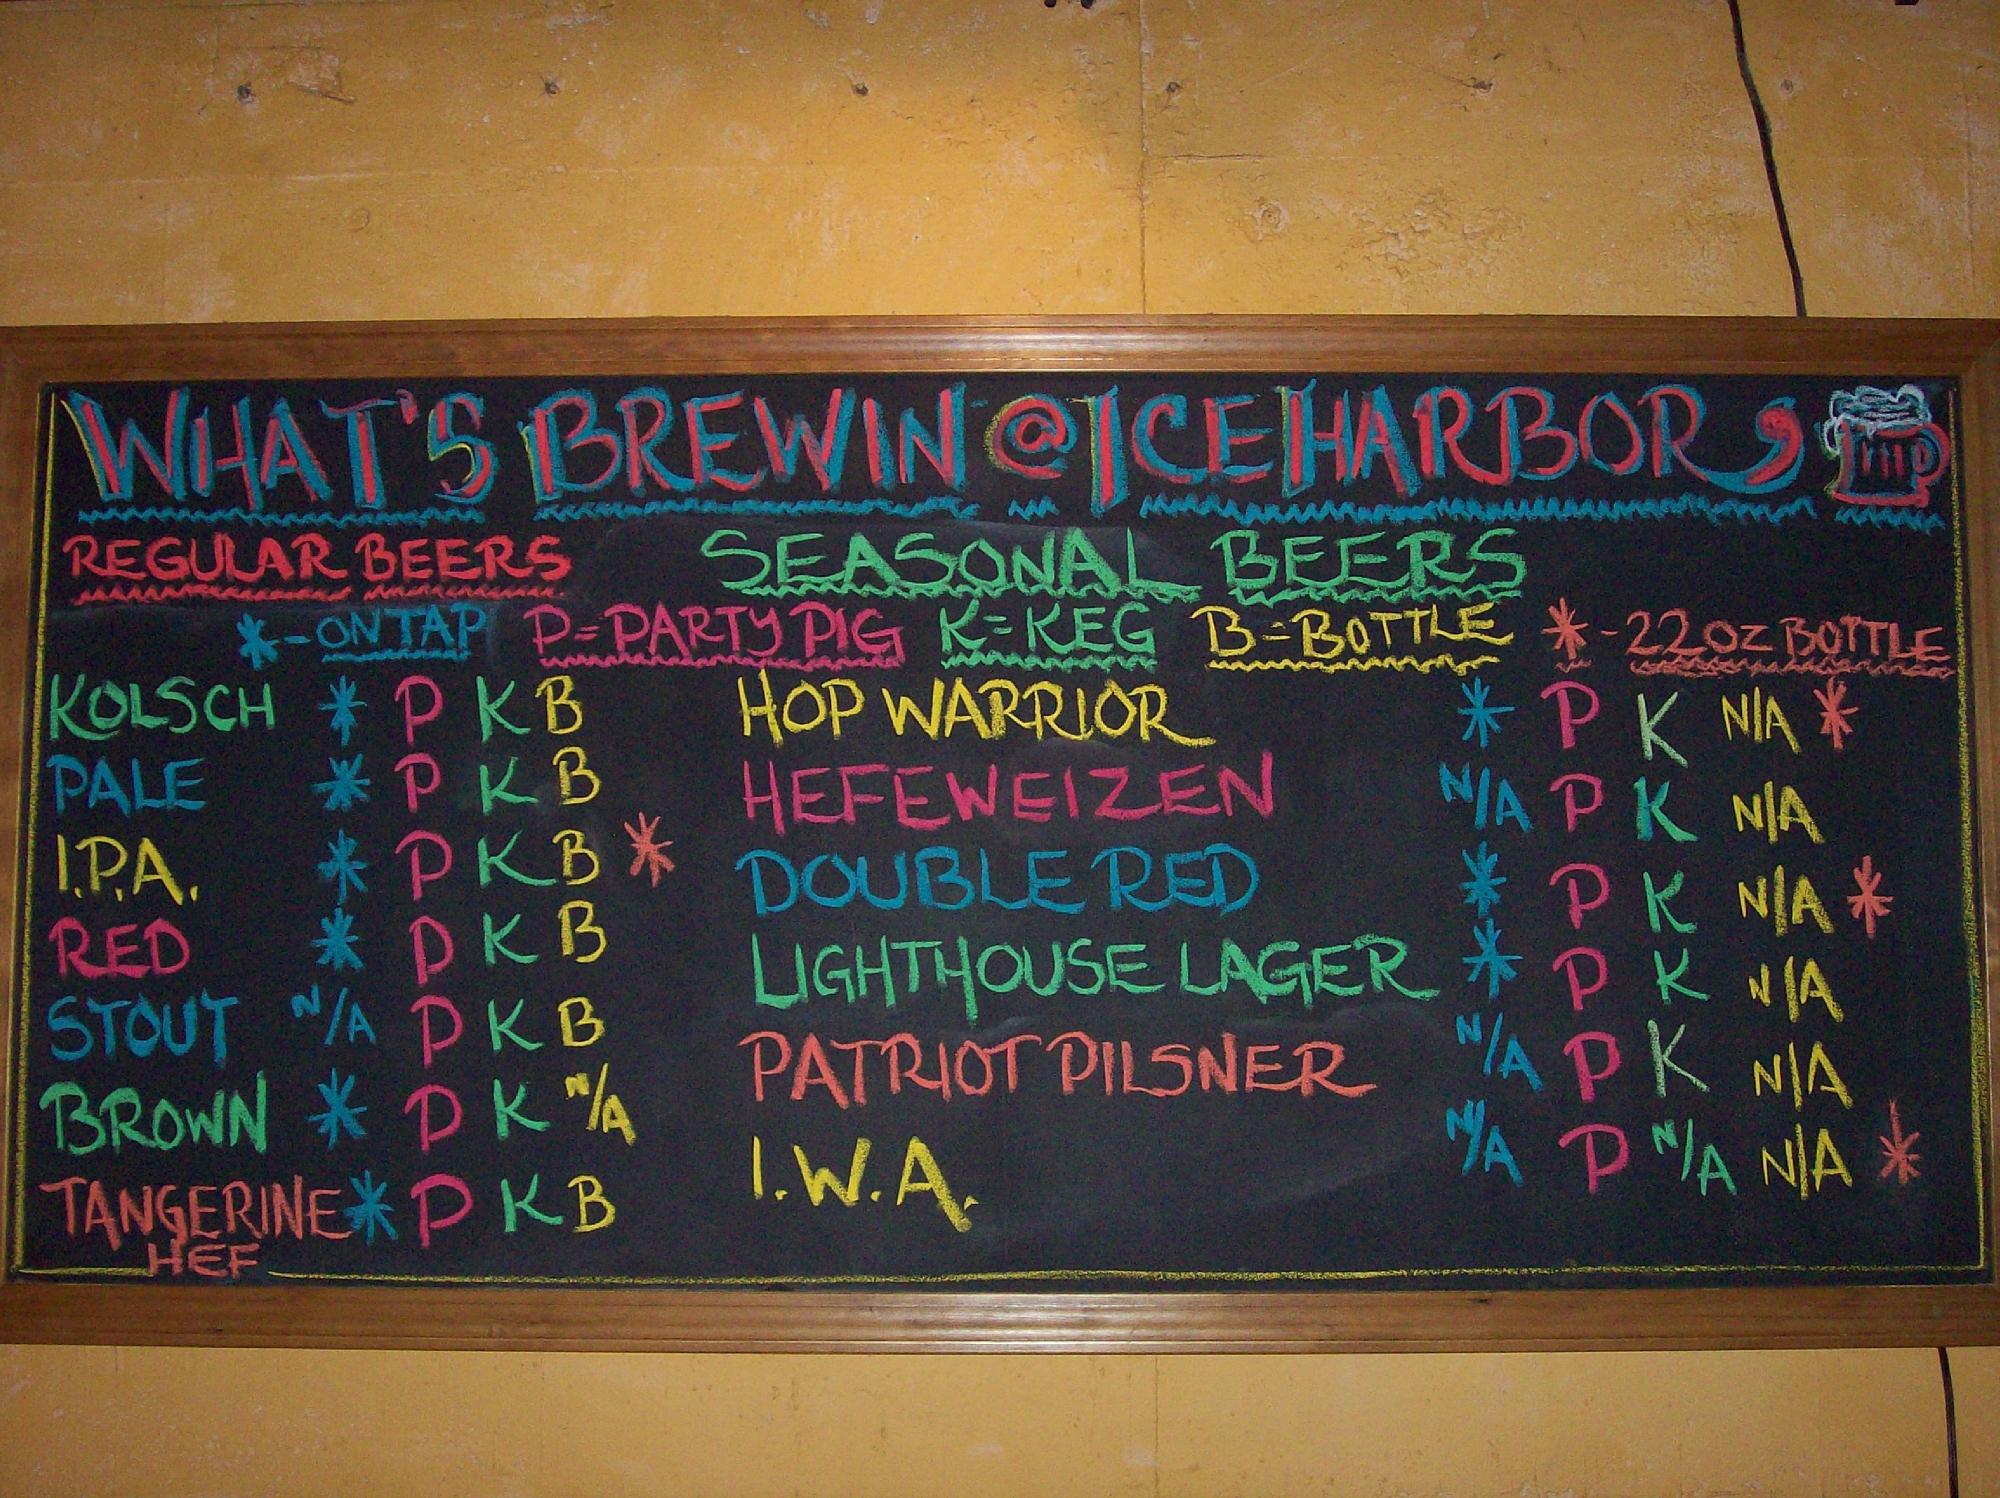 WHAT'S BREWIN @ ICE HARBOR,
REGULAR BEERS SEASONAL BEERS
* - ON TAP P = PARTY PIG K = KEG B = BOTTLE * - 22 OZ BOTTLE
KOLSCH * P K B HOP WARRIOR * P K N/A *
PALE * P K B HEFEWEIZEN N/A P K N/A
I.P.A. * P K B * DOUBLE RED * P K N/A *
RED * P K B LIGHTHOUSE LAGER * P K N/A
STOUT N/A P K B PATRIOT PILSNER N/A P K N/A
BROWN * P K N/A I.W.A. N/A P N/A N/A *
TANGERINE * P K B
HEF